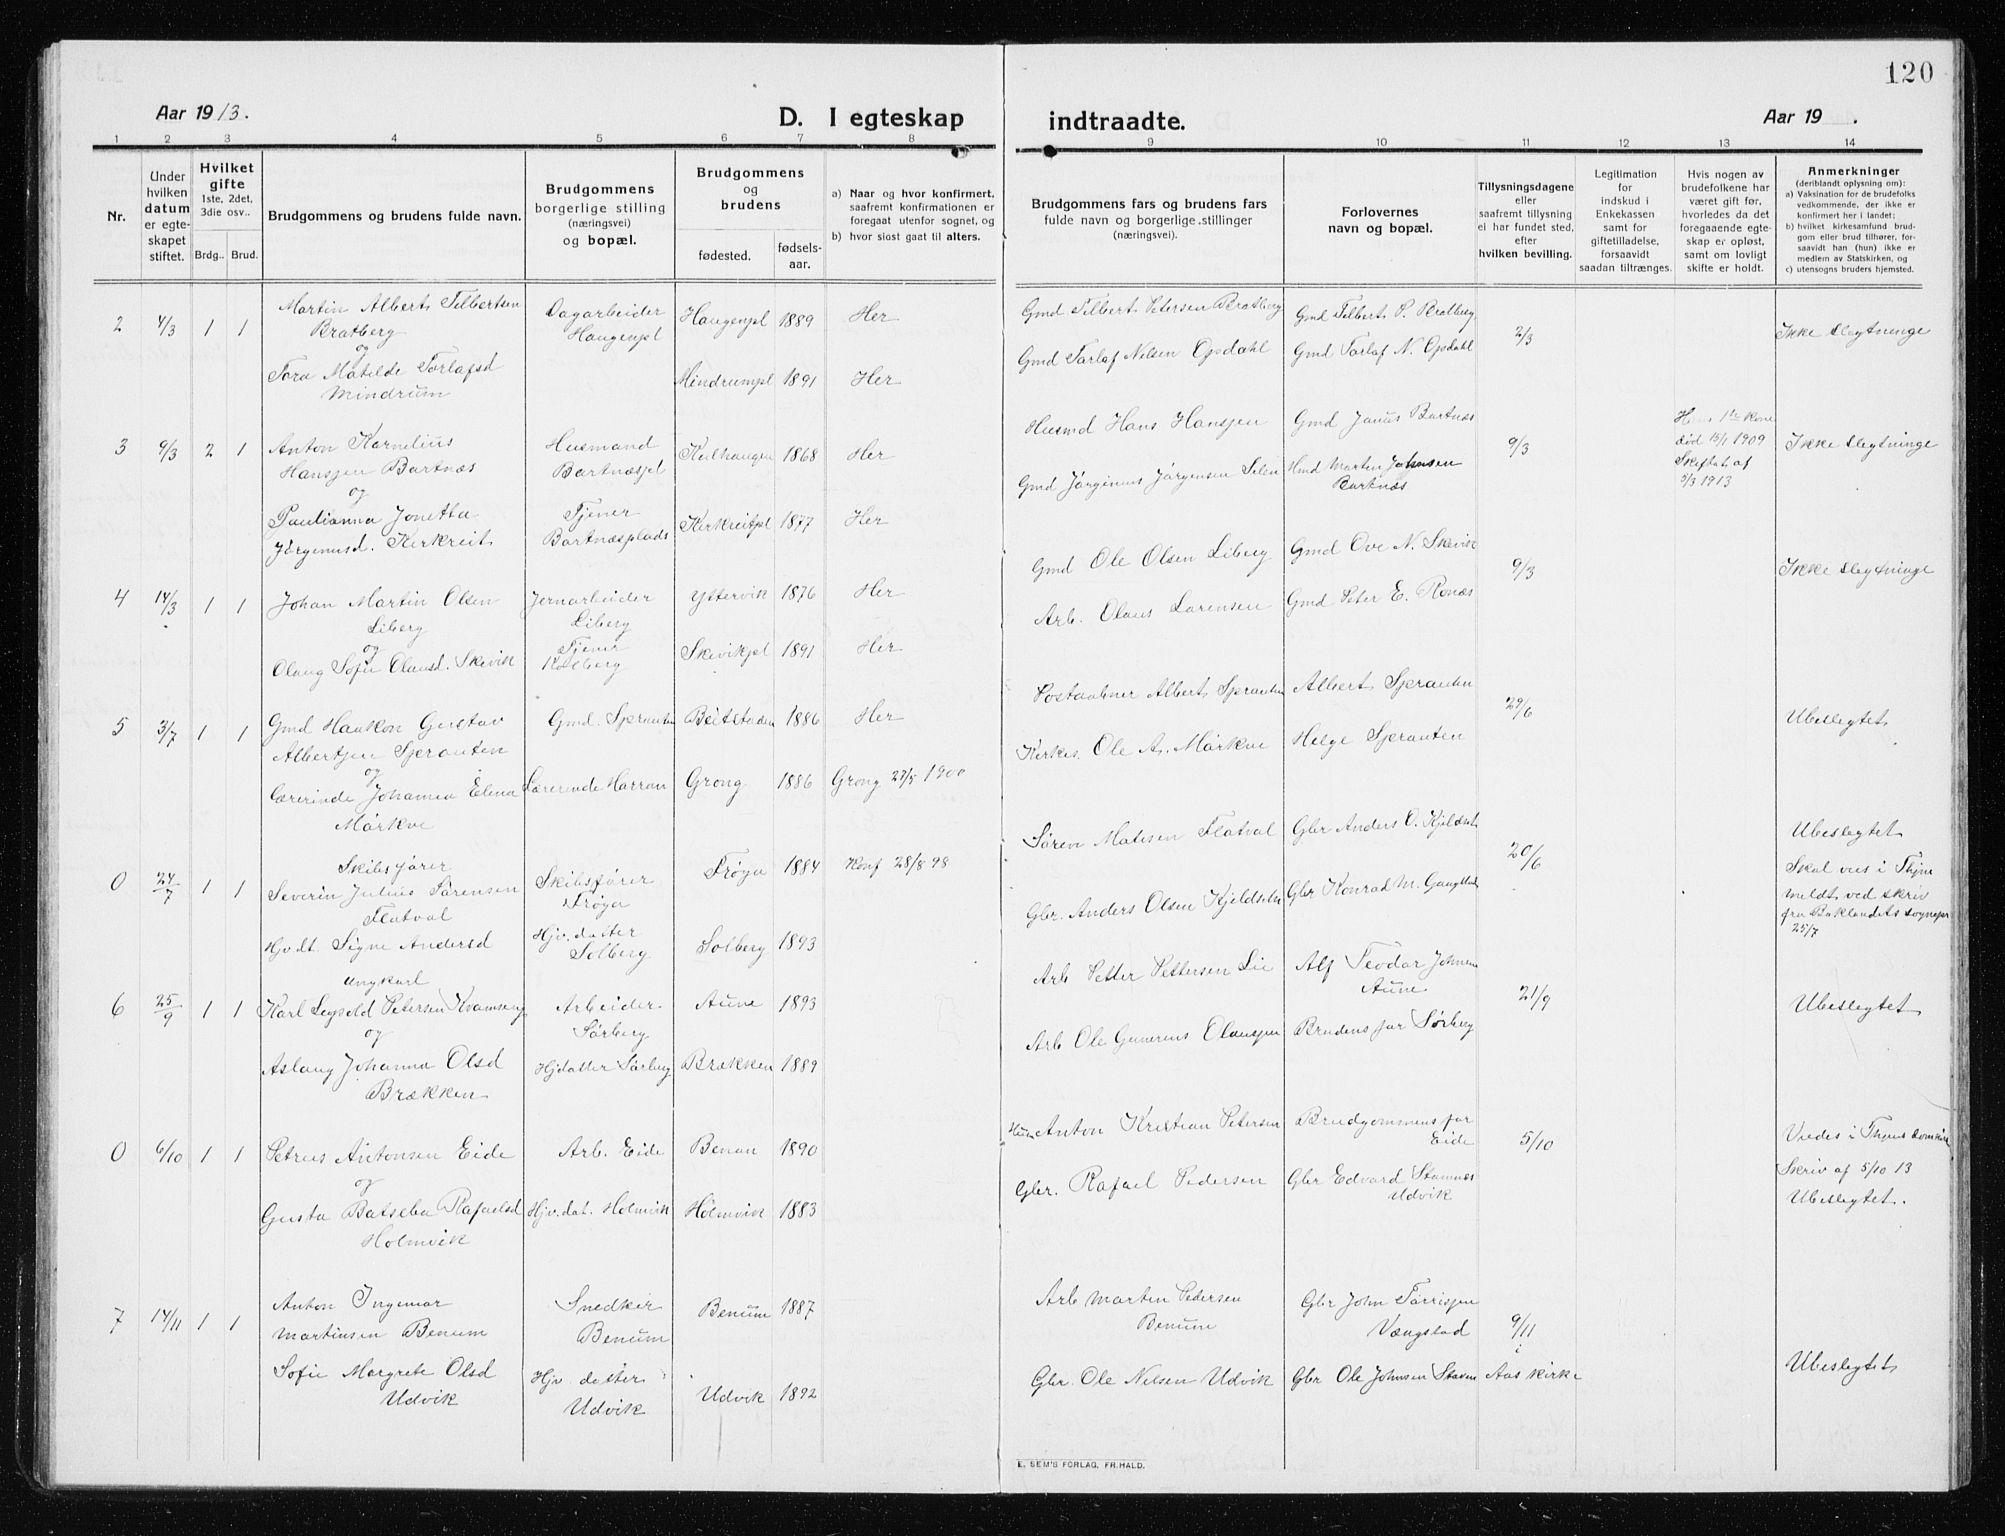 120
Aar 1913.
D. I egteskap
indtraadte.
Aar 19 .
1 2 3 4 5 6 7 8 9 10 11 12 13 14
Nr.
Under hvilken datum er egteskapet stiftet.
Hvilket gifte 1ste, 2det, 3die osv..
Brdg.. Brud.
Brudgommens og brudens fulde navn.
Brudgommens borgerlige stilling (næringsvei) og bopæl.
Brudgommens og brudens
fødested.
fødsels-aar.
a) Naar og hvor konfirmert, saafremt konfirmationen er foregaat utenfor sognet, og
b) hvor sidst gaat til alters.
Brudgommens fars og brudens fars fulde navn og borgerlige stillinger (næringsvei).
Forlovernes navn og bopæl.
Tillysningsdagene eller saafremt tillysning ei har fundet sted, efter hvilken bevilling.
Legitimation for indskud i Enkekassen samt for giftetilladelse, forsaavidt saadan tiltrænges.
Hvis nogen av brudefolkene har været gift før, hvorledes da det foregaaende egteskap er opløst, samt om lovligt skifte er holdt.
Anmerkninger
(deriblandt oplysning om):
a) Vaksination for de brudefolks vedkommende, der ikke er konfirmert her i landet;
b) hvilket kirkesamfund brudgom eller brud tilhører, forsaavidt han (hun) ikke er medlem av Statskirken, og
c) utensogns bruders hjemsted.
2 4/3 1 1 Martin Albert Tilbertsen Bratberg
og
Tora Matilde Torlafsd Mindrum
Dagarbeider Haugenpl
Haugenpl 1889 Her
Mindrumpl 1891 Her
Gmd Tilbert Petersen Bratberg
Gmd Torlaf Nilsen Opdahl
Gmd Tilbert P. Bratberg
Gmd Torlaf N. Opdahl
2/3
Ikke slegtninge
3 9/3 2 1 Anton Kornelius Hansen Bartnæs
og
Paulianna Jonetta Jörginusd. Kerkreit
Husmand Bartnæspl
Tjener Bartnæsplads
Keilhaugen 1868 Her
Kerkreitpl 1877 Her
Husmd Hans Hansen
Gmd Jörginus Jörgensen
Gmd Janus Bartnæs
Hmd Martin Johnsen Bartnæs
9/3
Hans 1te kone död 15/1 1909
Skiftet af 5/3 1913
Ikke slegtninge
4 14/3 1 1 Johan Martin Olsen Liberg
og
Olaug Sofie Olausd. Skevik
Jernarbeider Liberg
Tjener Kolberg
Yttervik 1876 Her
Skevikpl 1891 Her
Gmd Ole Olsen Liberg
Arb. Olaus Lorensen
Gmd Ove N. Skevik
Gmd Peter E. Ronæs
9/3
Ikke slegtninge
5 3/7 1 1 Gmd Haakon Gustav Albertsen Sprauten
og
Lærerinde Johanna Elena Mörkve
Gmd. Sprauten
Lærerinde Harran
Beitstaden 1886 Her
Grong 1886 Grong 27/5 1900
Postaabner Albert Sprauten
Kerkes. Ole A. Mörkve
Albert Sprauten
Helge Sprauten
29/6
Ubeslegtet
0 24/7 1 1 Skibsfører Severin Julius Sørensen Flatval
Hjv.dt. Signe Andersd
Skibsfører Frøya
Hjv. datter Solberg
Frøya 1884 Konf 28/8 98
Solberg 1893
Søren Matisen Flatval
Gbr. Anders Olsen Kjeldseth
Gbr Anders O. Kjeldset
Gbr Konrad M. Gangstad
20/6
Ubeslegtet
Skal vies i Thjem
meldt ved skriv
fra Baklandets sognepr
25/7
6 25/9 1 1 Ungkarl Karl Leopold Petersen Kvamseng
og
Aslaug Johanna Olsd Brækken
Arbeider Sørberg
Hjdatter Sørberg
Aune 1893
Brækken 1889
Arb Petter Pettersen Lie
Arb Ole Gunerius Olaussen
Alf Teodor Johnsen Aune
Brudens far Sørberg
21/9
Ubeslegtet
0 6/10 1 1 Petrus Antonsen Eide
og
Gusta Batseba Rafaelsd Holmvik
Arb. Eide
Hjv. dat. Holmvik
Benan 1890
Holmvik 1883
Anton Kristian Petersen
Gbr. Rafael Pedersen
Brudgommens far Eide
Gbr Edvard Stamnes Udvik
5/10
Viedes i Thjems Domkirke
Skriv af 5/10 13
Ubeslegtet.
7 14/11 1 1 Anton Ingemar Martinsen Benum
Sofie Margrete Olsd Udvik
Snedker Benum
Hjv. datter Udvik
Benum 1887
Udvik 1892
Arb Martin Pedersen Benum
Gbr. Ole Nilsen Udvik
Gbr John Torrissen Vængstad
Gbr Ole Johnsen
9/11 i Aas kirke
Ubeslegtet
E. SEM'S FORLAG, FR.HALD.